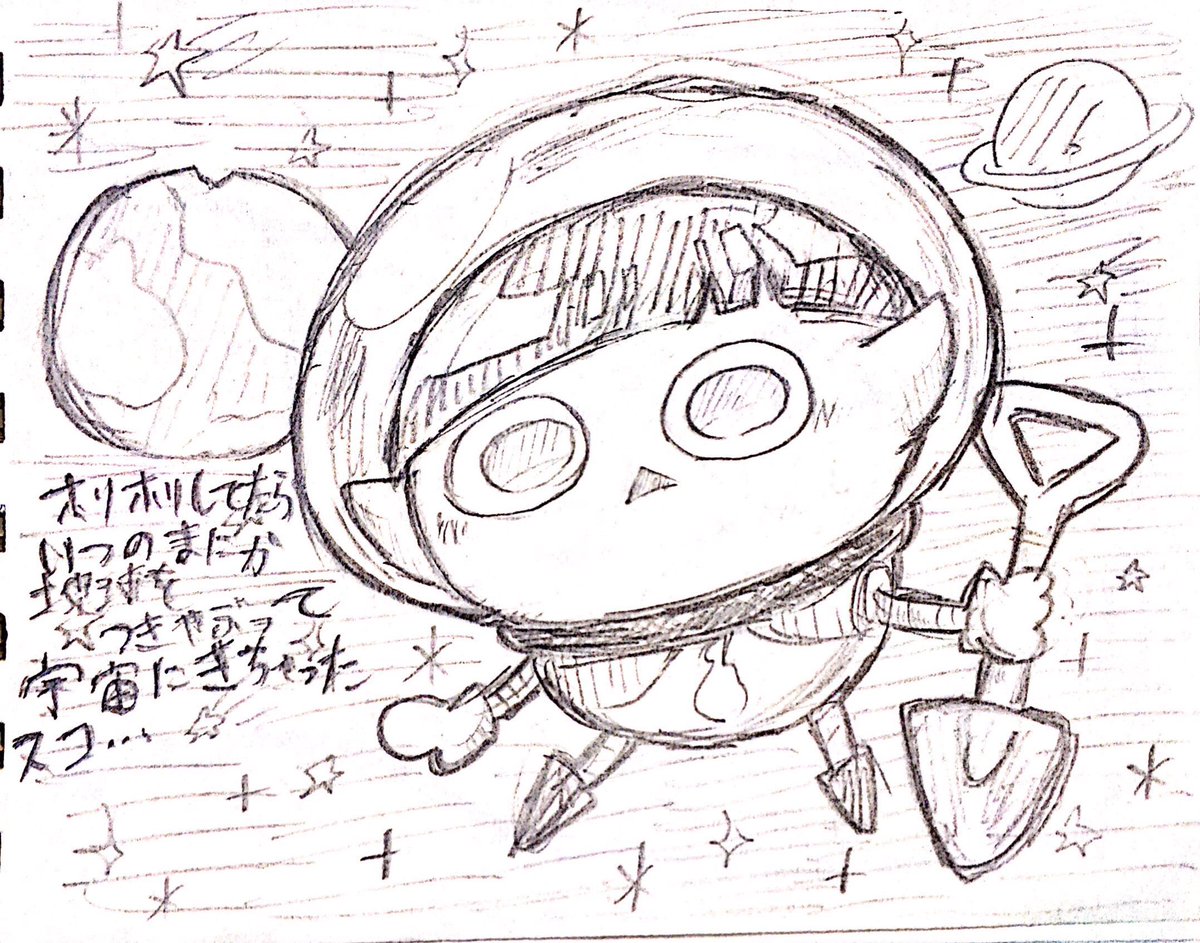 ホリホリしてたら
いつのまにか
地球を
つきやぶって
宇宙にきちゃった
スコ…